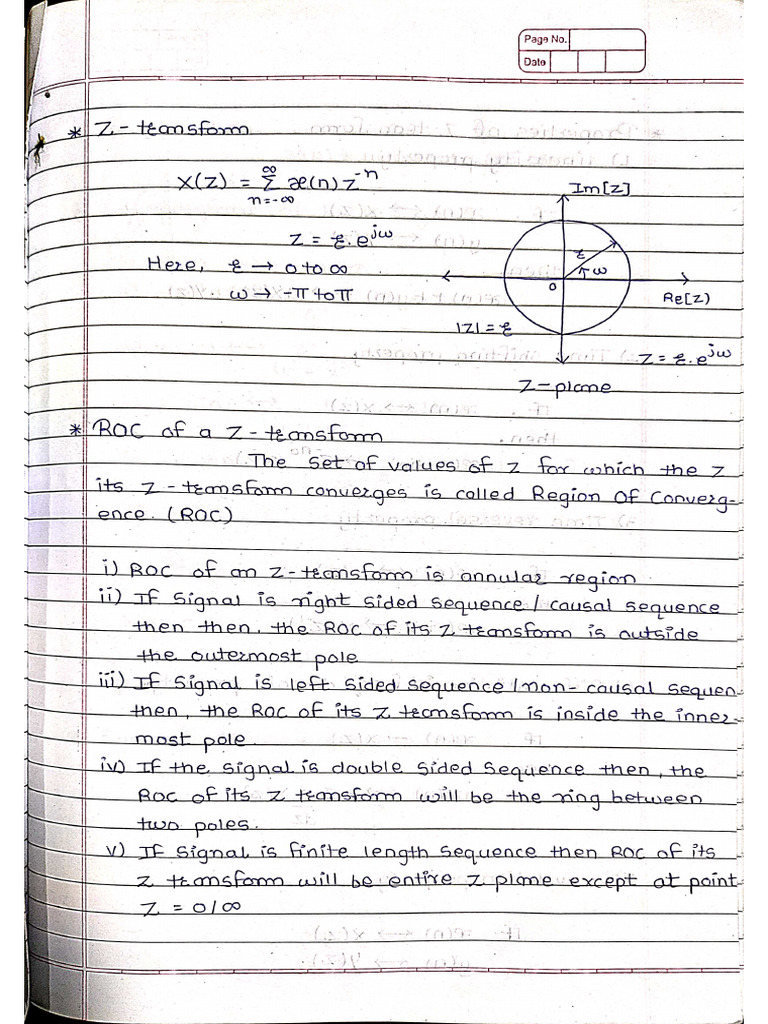 Page No.
Date
* Z-transform
X(Z) = ∞Σn=-∞ x(n) Z^-n
Im[Z]
Z = r.e^jω
r
ω
Here, r → 0 to ∞
0
Re[Z)
ω → -π to π
|Z| = r
Z = r.e^jω
Z-plane
* ROC of a Z-transform
The set of values of z for which the z
its Z-transform converges is called Region Of Converg-
ence. (ROC)
i) ROC of an Z-transform is annular region
ii) If Signal is right sided sequence / causal sequence
then then, the ROC of its Z transform is outside
the outermost pole
iii) If Signal is left sided sequence / non-causal sequen
then, the ROC of its Z transform is inside the inner-
most pole.
iv) If the signal is double sided sequence then, the
ROC of its Z transform will be the ring between
two poles.
v) If Signal is finite length sequence then ROC of its
Z transform will be entire Z plane except at point
Z = 0/∞